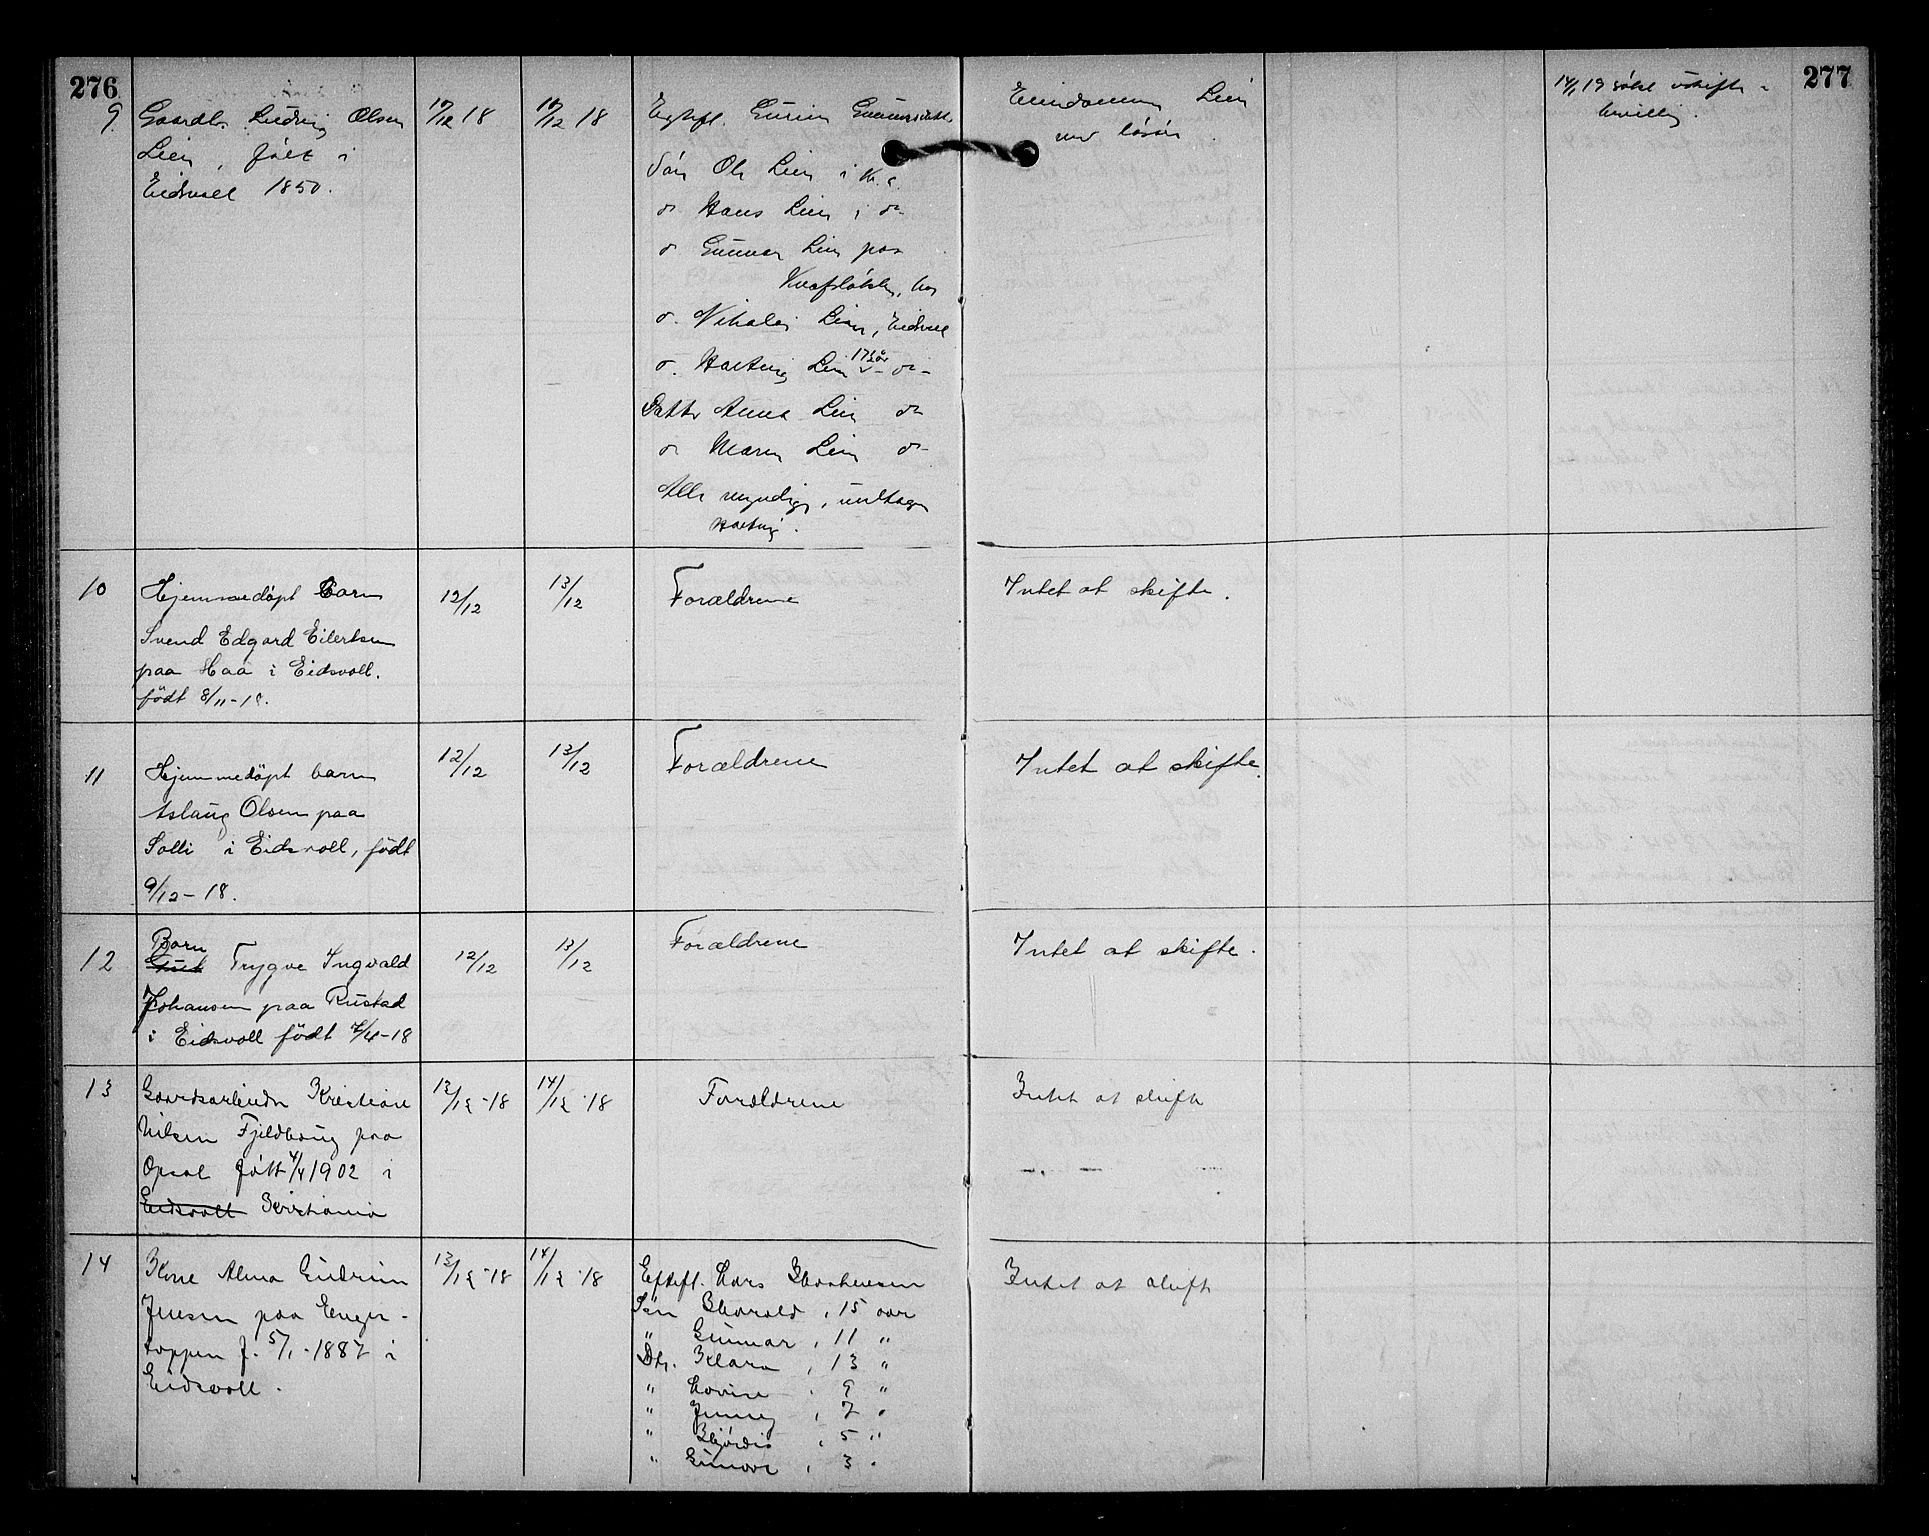 276
277
9
Gaardb. Ludvig Olsen
Lien, født i
Eidsvoll 1850.
10/12 18
10/12 18
Egtefl.
Søn Ole Lien i Kr.a.
do Hans Lien i do
do Gunnar Lien paa
hos
do. Nikolai Lien, Eidsvoll
do. Hartvig Lien 17 år - do -
Datter Anna Lien do
do Maren Lien do
Alle myndige, undtagen
Hartvig.
Eiendommen Lien
med løsøre.
14/1 19 søkt uskifte-
bevilling.
10
Hjemmedøpt Barn
Svend Edgard Eilertsen
paa Haa i Eidsvoll.
født 8/11-18.
12/12
13/12
Forældrene
Intet at skifte.
11
Hjemmedøpt barn
Aslaug Olsen paa
Solli i Eidsvoll, født
9/12-18.
12/12
13/12
Forældrene
Intet at skifte.
12
Barn
Gut Trygve Ingvald
Johansen paa Rustad
i Eidsvoll født 7/4-18
12/12
13/12
Forældrene
Intet at skifte.
13
Gaardsarbeider Kristian
Nilsen Fjeldhaug paa
Opsal født 4/4 1902 i
Eidsvoll Kristiania
13/12-18
14/12-18
Forældrene
Intet at skifte
14
Kone Alma Gudrun
Jensen paa Enger-
toppen f. 5/1-1887 i
Eidsvoll.
13/12-18
14/12-18
Eftefl. Lars
Søn Harald, 15 aar
" Gunnar, 11 "
Dtr. Klara, 13 "
" Lovise, 9 "
" Jenny, 7 "
" Hjørdis, 5 "
" Gunvor, 3 "
Intet at skifte